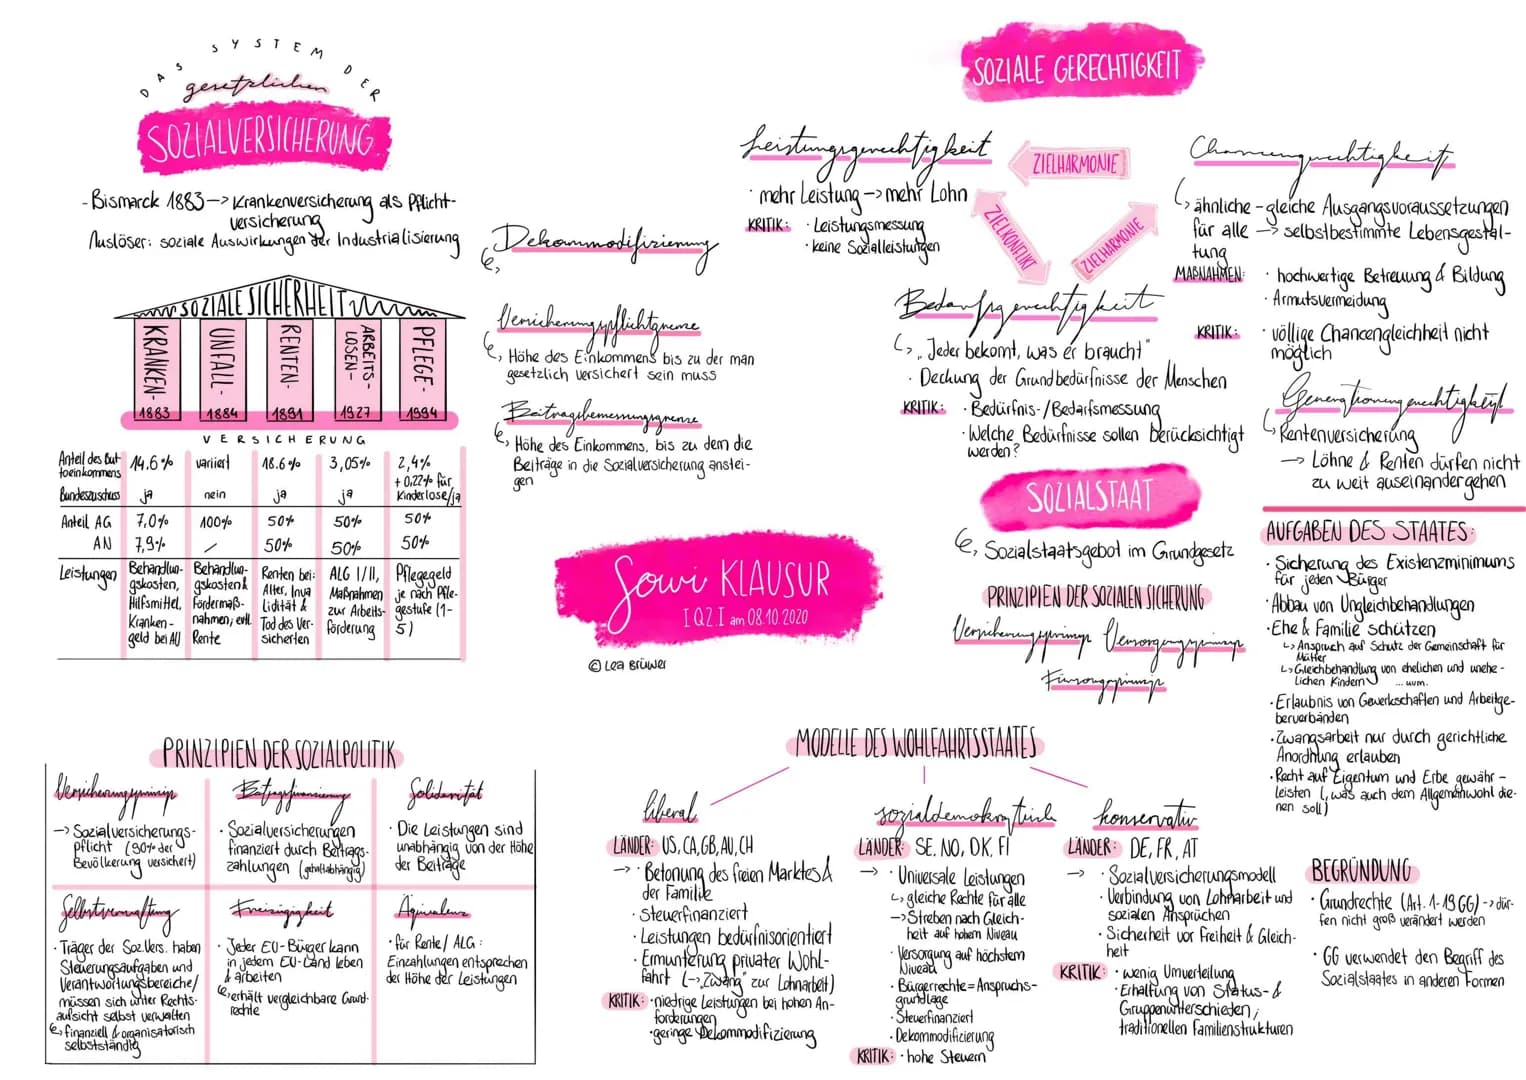 DAS SYSTEM DER
gesetzlichen
SOZIALVERSICHERUNG
- Bismarck 1883 -> Krankenversicherung als Pflicht-
versicherung
Auslöser: soziale Auswirkungen der Industrialisierung
SOZIALE SICHERHEIT
KRANKEN- 1883
UNFALL- 1884
RENTEN- 1891
ARBEITS-
LOSEN- 1927
PFLEGE- 1994
VERSICHERUNG
Anteil des But-
toeinkommens 14.6% variiert 18.6% 3,05% 2,4%
+ 0,22% für
Kinderlose/ja
Bundeszuschuss ja nein ja ja
Anteil AG 7,0% 100% 50% 50% 50%
AN 7,9% / 50% 50% 50%
Leistungen
Behandlun-
gskosten,
Hilfsmittel,
Kranken-
geld bei AU
Behandlun-
gskosten &
Fördermaß-
nahmen, evtl.
Rente
Renten bei:
Alter, Inva
lidität &
Tod des Ver-
sicherten
ALG I/II,
Maßnahmen
zur Arbeits-
förderung
Pflegegeld
je nach Pfle-
gestufe (1-
5)
Dekommodifizierung
Versicherungspflichtgrenze
Höhe des Einkommens bis zu der man
gesetzlich versichert sein muss
Beitragsbemessungsgrenze
Höhe des Einkommens, bis zu dem die
Beiträge in die Sozialversicherung anstei-
gen
SOZIALE GERECHTIGKEIT
Leistungsgerechtigkeit
· mehr Leistung -> mehr Lohn
KRITIK: · Leistungsmessung
· keine Sozialleistungen
ZIELHARMONIE
ZIELKONFLIKT
ZIELHARMONIE
Chancengerechtigkeit
ähnliche - gleiche Ausgangsvoraussetzungen
für alle -> selbstbestimmte Lebensgestal-
tung
MAßNAHMEN: · hochwertige Betreuung & Bildung
· Armutsvermeidung
KRITIK: · völlige Chancengleichheit nicht
möglich
Bedarfsgerechtigkeit
„Jeder bekommt, was er braucht"
· Deckung der Grundbedürfnisse der Menschen
KRITIK: · Bedürfnis-/Bedarfsmessung
· Welche Bedürfnisse sollen berücksichtigt
werden?
Generationengerechtigkeit
Rentenversicherung
-> Löhne & Renten dürfen nicht
zu weit auseinandergehen
SOZIALSTAAT
Sozialstaatsgebot im Grundgesetz
PRINZIPIEN DER SOZIALEN SICHERUNG
Versicherungsprinzip Versorgungsprinzip
Fürsorgeprinzip
AUFGABEN DES STAATES:
· Sicherung des Existenzminimums
für jeden Bürger
· Abbau von Ungleichbehandlungen
· Ehe & Familie schützen
-> Anspruch auf Schutz der Gemeinschaft für
Mütter
-> Gleichbehandlung von ehelichen und unehe-
lichen Kindern ... uvm.
· Erlaubnis von Gewerkschaften und Arbeitge-
berverbänden
· Zwangsarbeit nur durch gerichtliche
Anordnung erlauben
· Recht auf Eigentum und Erbe gewähr-
leisten (, was auch dem Allgemeinwohl die-
nen soll)
BEGRÜNDUNG
· Grundrechte (Art. 1-19 GG) -> dür-
fen nicht groß verändert werden
· GG verwendet den Begriff des
Sozialstaates in anderen Formen
Sowi KLAUSUR
I QZ.I am 08.10.2020
© Lea Brüwer
PRINZIPIEN DER SOZIALPOLITIK
Versicherungsprinzip
-> Sozialversicherungs-
pflicht (90% der
Bevölkerung versichert)
Beitragsfinanzierung
· Sozialversicherungen
finanziert durch Beitrags-
zahlungen (gehaltabhängig)
Solidarität
· Die Leistungen sind
unabhängig von der Höhe
der Beiträge
Selbstverwaltung
· Träger der Soz.Vers. haben
Steuerungsaufgaben und
Verantwortungsbereiche/
müssen sich unter Rechts-
aufsicht selbst verwalten
finanziell & organisatorisch
selbstständig
Freizügigkeit
· Jeder EU-Bürger kann
in jedem EU-Land leben
& arbeiten
erhält vergleichbare Grund-
rechte
Äquivalenz
· für Rente/ALG:
Einzahlungen entsprechen
der Höhe der Leistungen
MODELLE DES WOHLFAHRTSSTAATES
liberal
LÄNDER: US, CA, GB, AU, CH
-> · Betonung des freien Marktes &
der Familie
· Steuerfinanziert
· Leistungen bedürfnisorientiert
· Ermunterung privater Wohl-
fahrt (->„Zwang" zur Lohnarbeit)
KRITIK: · niedrige Leistungen bei hohen An-
forderungen
· geringe Dekommodifizierung
sozialdemokratisch
LÄNDER: SE, NO, DK, FI
-> · Universale Leistungen
-> gleiche Rechte für alle
-> Streben nach Gleich-
heit auf hohem Niveau
· Versorgung auf höchstem
Niveau
· Bürgerrechte = Anspruchs-
grundlage
· Steuerfinanziert
· Dekommodifizierung
KRITIK: · hohe Steuern
konservativ
LÄNDER: DE, FR, AT
-> · Sozialversicherungsmodell
· Verbindung von Lohnarbeit und
sozialen Ansprüchen
· Sicherheit vor Freiheit & Gleich-
heit
KRITIK: · wenig Umverteilung
· Erhaltung von Status- &
Gruppenunterschieden,
traditionellen Familienstrukturen